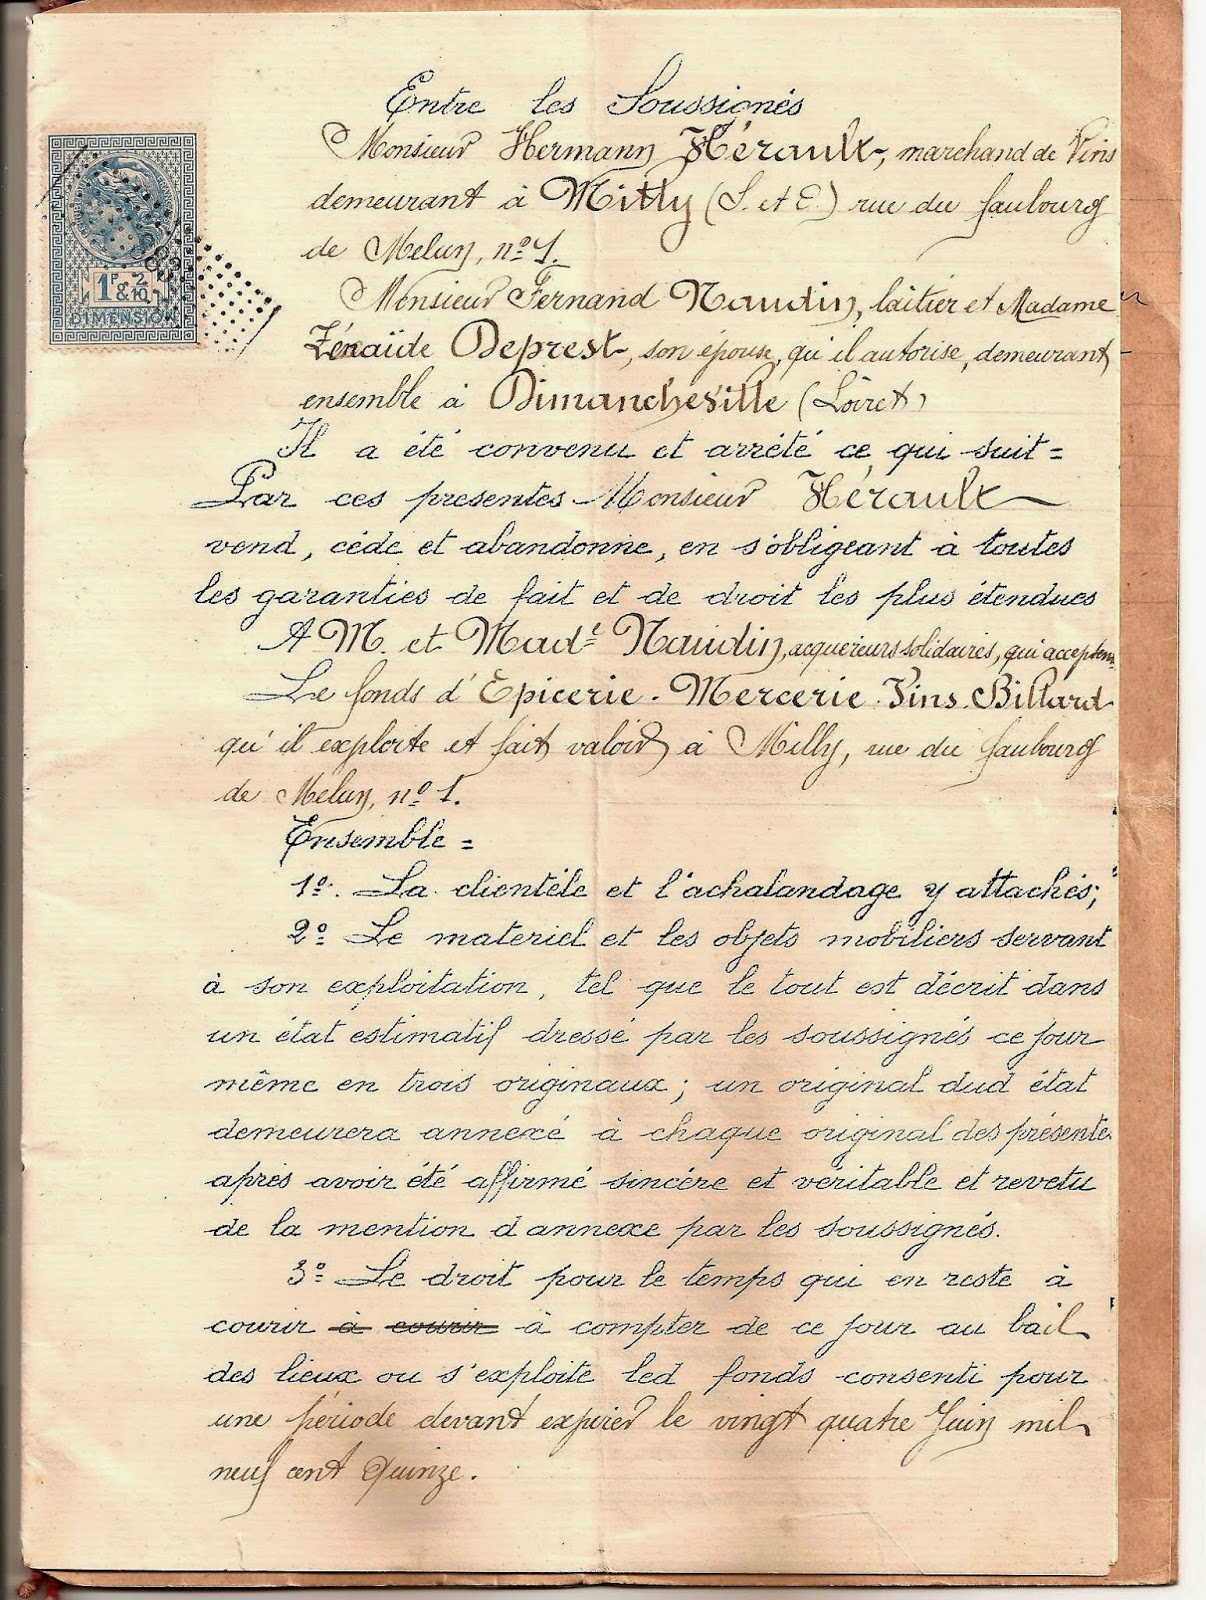 Entre les Soussignés
Monsieur Hermann Hérault, marchand de Vins
demeurant à Milly (S. et O.) rue du faubourg
de Melun, nº 1.
Monsieur Fernand Naudin, laitier et Madame
Zénaïde Deprest, son épouse, qu'il autorise, demeurant
ensemble à Dimancheville (Loiret)
Il a été convenu et arrêté ce qui suit =
Par ces presentes Monsieur Hérault
vend, cède et abandonne, en s'obligeant à toutes
les garanties de fait et de droit les plus étendues
A M. et Made Naudin, acquereurs solidaires, qui acceptent
Le fonds d'Epicerie - Mercerie. Vins. Billard
qu'il exploite et fait valoir à Milly, rue du faubourg
de Melun, nº 1.
Ensemble =
1º. La clientèle et l'achalandage y attachés;
2º Le materiel et les objets mobiliers servant
à son exploitation, tel que le tout est décrit dans
un état estimatif dressé par les soussignés ce jour
même en trois originaux; un original dud état
demeurera annexé à chaque original des présente
après avoir été affirmé sincère et véritable et revetu
de la mention d'annexe par les soussignés.
3º Le droit pour le temps qui en reste à
courir à courir à compter de ce jour au bail
des lieux ou s'exploite led fonds consenti pour
une période devant expirer le vingt quatre Juin mil
neuf cent Quinze.
1F & 2/10
DIMENSION